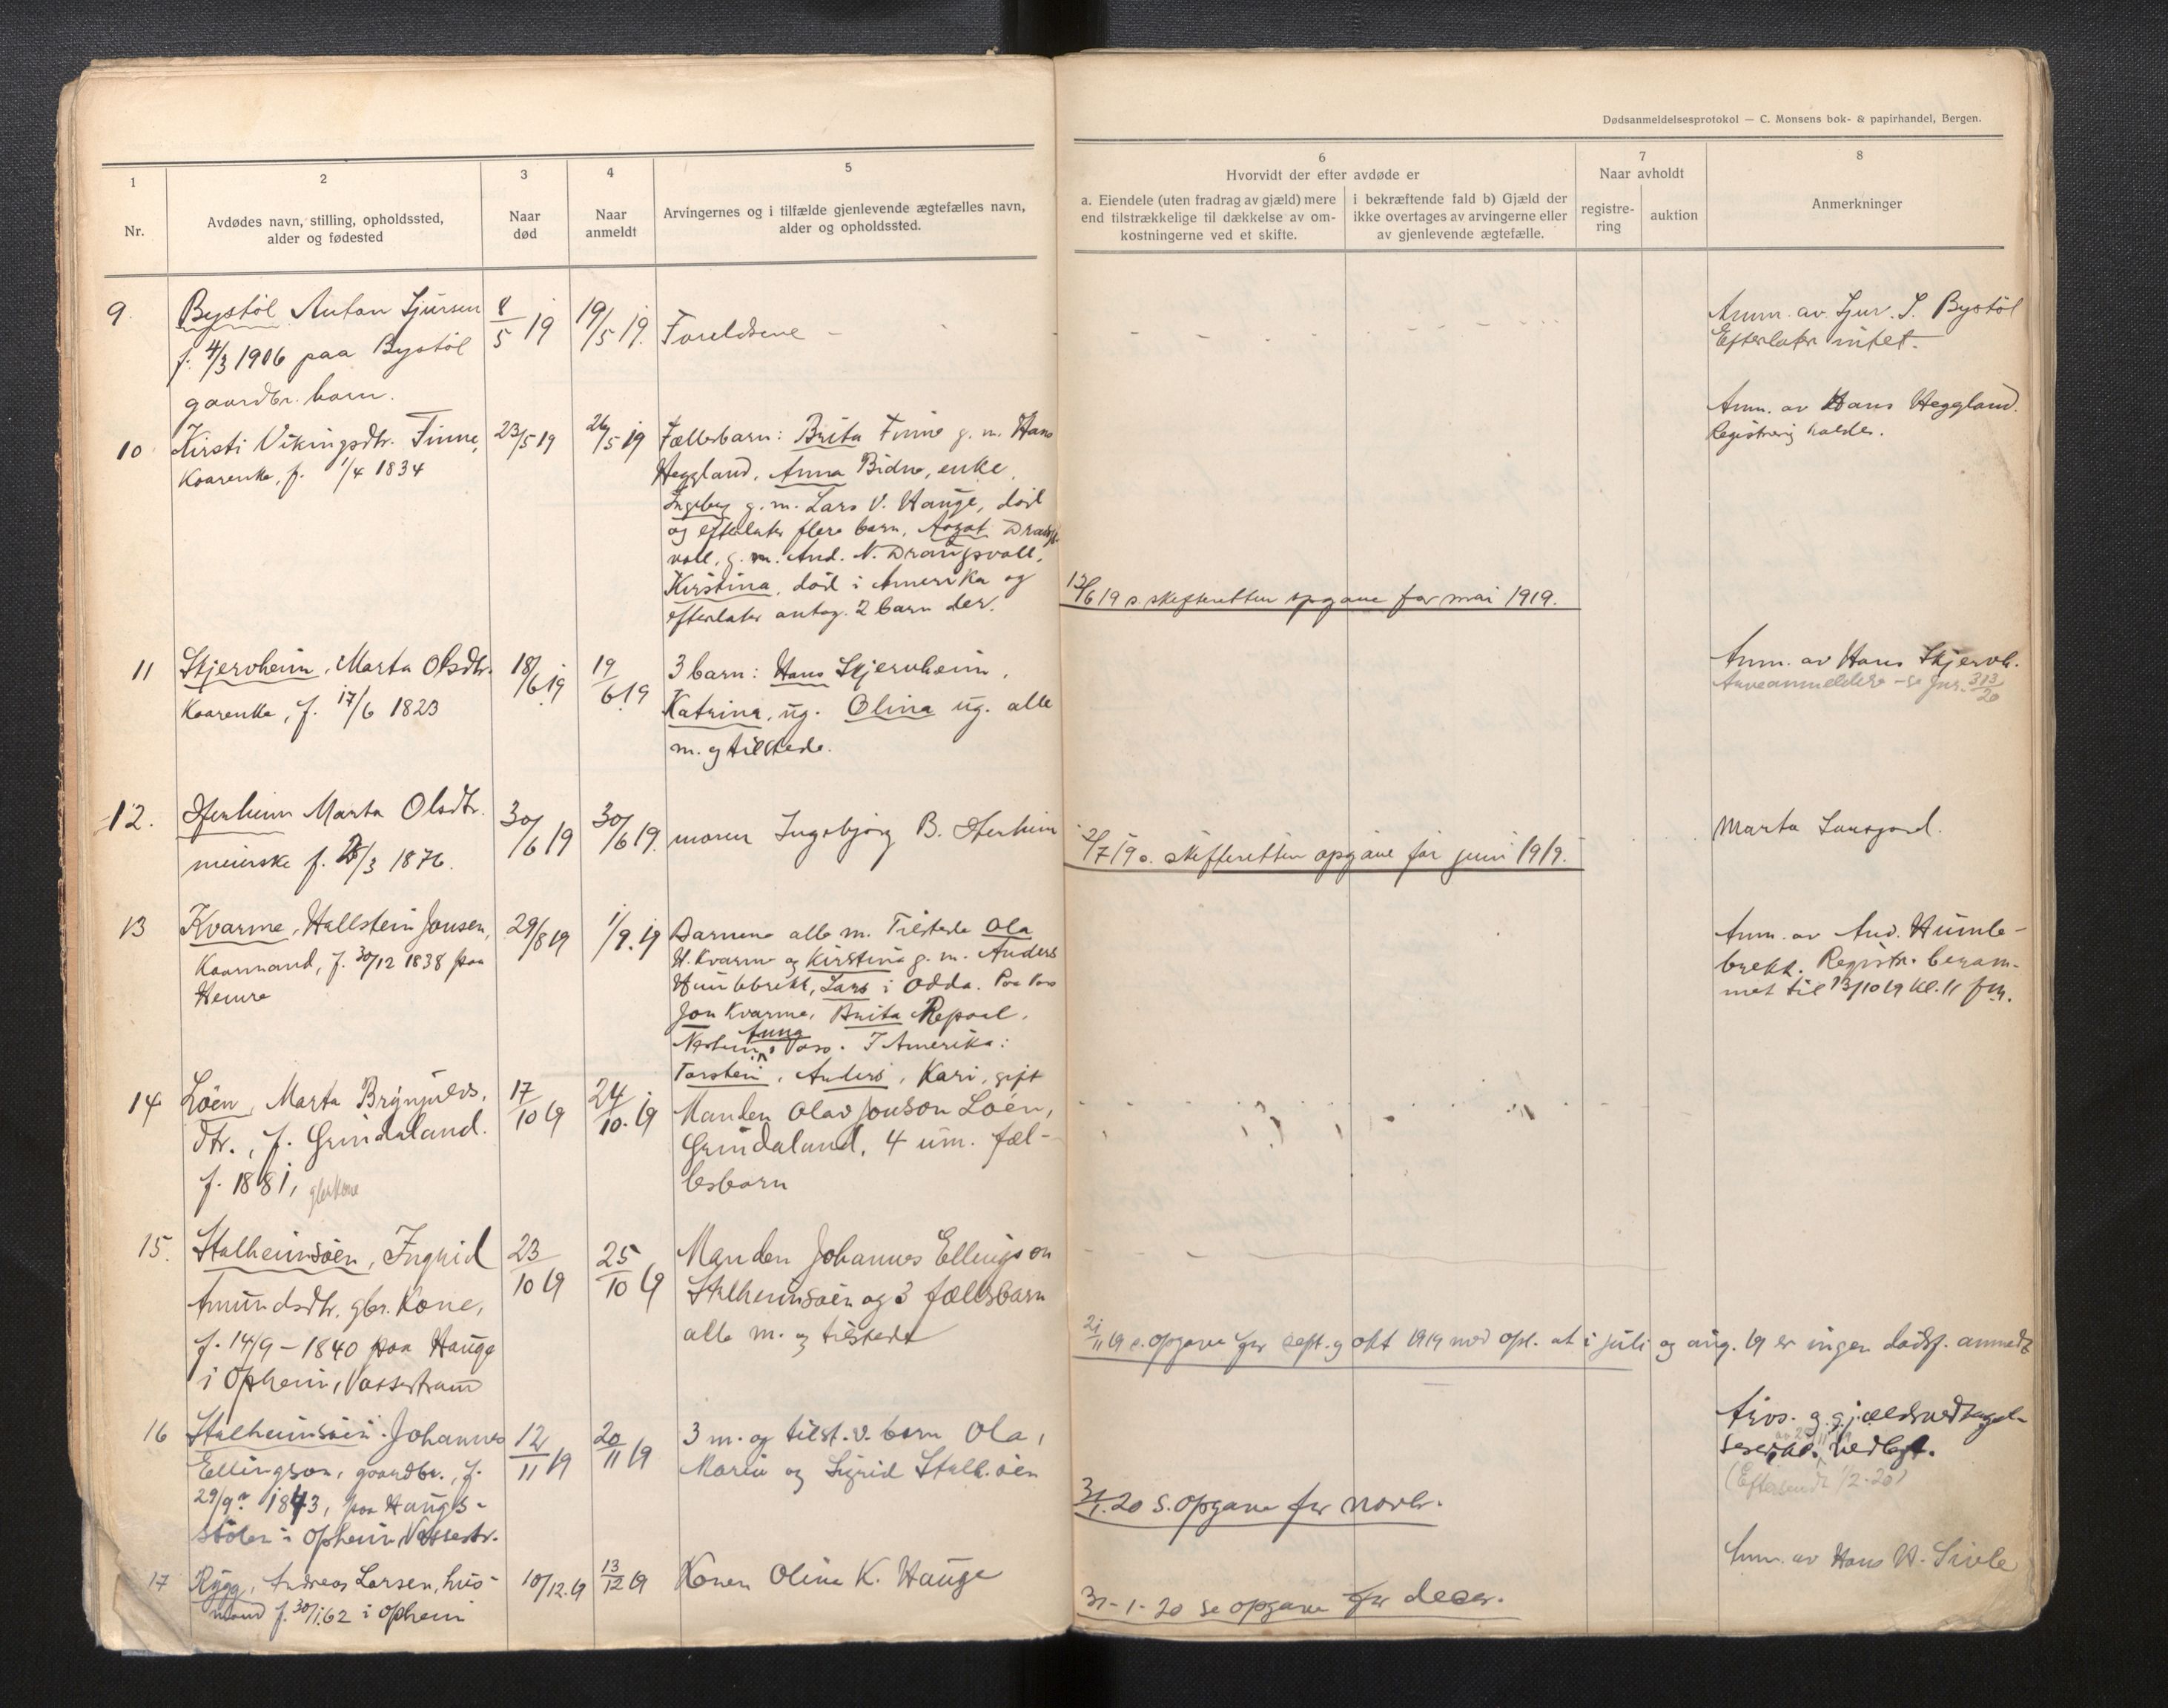 Dødsanmeldelsesprotokol — C. Monsens bok- & papirhandel, Bergen.
1
Nr.
2
Avdødes navn, stilling, opholdssted,
alder og fødested
3
Naar
død
4
Naar
anmeldt
5
Arvingernes og i tilfælde gjenlevende ægtefælles navn,
alder og opholdssted.
6
Hvorvidt der efter avdøde er
a. Eiendele (uten fradrag av gjæld) mere
end tilstrækkelige til dækkelse av om-
kostningerne ved et skifte.
i bekræftende fald b) Gjæld der
ikke overtages av arvingerne eller
av gjenlevende ægtefælle.
7
Naar avholdt
registre-
ring
auktion
8
Anmerkninger
9.
Bystöl Anton Sjursen
f. 4/3 1906 paa Bystöl
gaardbr. barn.
8/5 19
19/5 19.
Foreldrene -
Anm. av Sjur. S. Bystöl
Efterlater intet.
10
Kirsti Vikingsdtr. Finne,
Kaarenke, f. 1/4 1834
23/5 19
26/5 19
Fællesbarn: Brita Finne g. m. Hans
Heggland, Anna Bidne, enke,
Ingeborg g. m. Lars V. Hauge, död
og efterlater flere barn, Aagot Drangs-
voll, g. m. And. N. Drangsvoll,
Kirstina, död i Amerika og
efterlater antag. 2 barn der.
12/6 19 s skifteretten opgave for mai 1919.
Anm. av Hans Heggland.
Registrering holdes.
11
Skjervheim, Marta Olsdtr.
Kaarenke, f. 17/6 1823
18/6 19
19/6 19
3 barn: Hans Skjervheim,
Katrina, ug. Olina ug. alle
m. og tilstede.
Anm. av Hans Skjervh.
Arveanmeldelse - se Jnr. 313/20
12.
Aferheim Marta Olsdtr.
meierske f. /3 1876.
30/6 19
30/6 19.
moren Ingebjörg B. Aferheim
2/7 19 s. skifteretten opgave for juni 1919.
Marta
13
Kvarme, Hallstein Jonsen,
Kaarmand, f. 30/12 1838 paa
Hemre
29/8 19
1/9. 19
Barnene alle m. Tilstede Ola
H. Kvarme og Kirstina g. m. Anders
Humlebrekk, Lars i Odda. Paa Voss
Jon Kvarme, Brita Repaal,
Anna
Nesheim, Voss. I Amerika:
Torstein, Anders, Kari, gift
Anm. av And. Humle-
brekk. Registr. beram-
met til 13/10 19 kl. 11 fm.
14
Löen, Marta Brynjulvs.
dtr., f. Grindaland.
f. 1881, gbr kone
17/10 19
24/10. 19
Manden Olav Jonson Löen,
Grindaland, 4 um. fæl-
lesbarn
15.
Stalheimsöen, Ingrid
Amundsdtr. gbr. Kone,
f. 14/9 - 1840 paa Hauge
i Opheim, Vossestrand
23/10 19
25/10 19
Manden Johannes Ellingson
Stalheimsöen og 3 fællesbarn
alle m. og tilstede
21/11 19 s. opgave for sept. og okt 1919 med opl. at i juli og aug. 19 er ingen dödsf. anmeldt
16
Stalheimsöen. Johannes
Ellingson, gaardbr., f.
29/9 1843, paa Haugs-
stölen i Opheim Vossestr.
12/11 19
20/11 19
3 m. og tilst. v. barn Ola,
Maria og Sigrid Stalh.öen
31/1.20 s. opgave for novbr.
Arvs. og gjældsvedtagel-
seserkl. vedlagt.
av 25/11 19
(Eftersendt 1/2-20)
17
Rygg, Andreas Larsen, hus-
mand f. 30/1.62 i Opheim
10/12.19
13/12 19
Konen Oline K. Hauge
31-1-20 se opgave for decbr.
Anm. av Hans H. Sivle